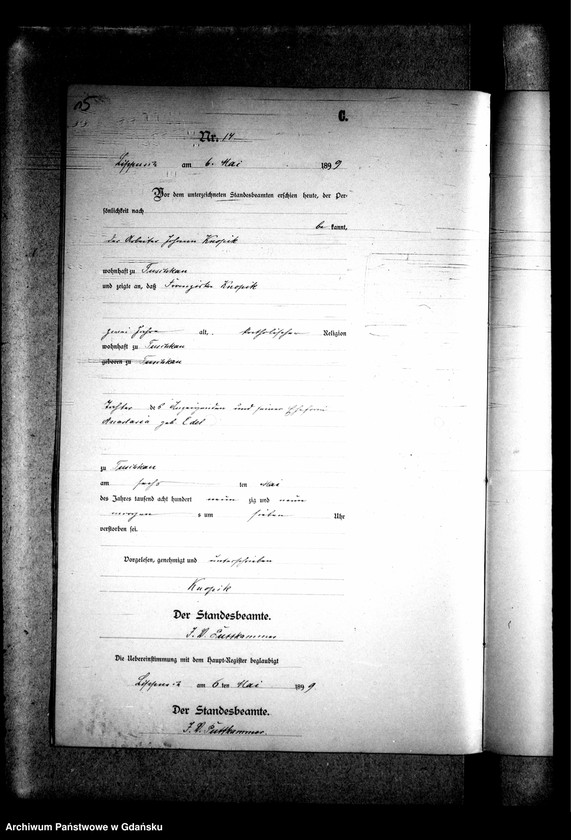 15
C.
Nr. 14
am 6. Mai 1899
Vor dem unterzeichneten Standesbeamten erschien heute, der Per-
sönlichkeit nach
be kannt,
der Arbeiter Johann Knopik
wohnhaft zu Tuschkau
und zeigte an, daß Franziska Knopik
zwei Jahre alt, katholischer Religion
wohnhaft zu Tuschkau
geboren zu Tuschkau
Tochter des Anzeigenden und seiner Ehefrau
Anastasia geb. Edel
zu Tuschkau
am sechs ten Mai
des Jahres tausend acht hundert neun zig und neun
morgen s um sieben Uhr
verstorben sei.
Vorgelesen, genehmigt und unterschrieben
Knopik
Der Standesbeamte.
J. V. Puttkammer
Die Uebereinstimmung mit dem Haupt-Register beglaubigt
am 6 ten Mai 1899
Der Standesbeamte.
J. V. Puttkammer
Archiwum Państwowe w Gdańsku